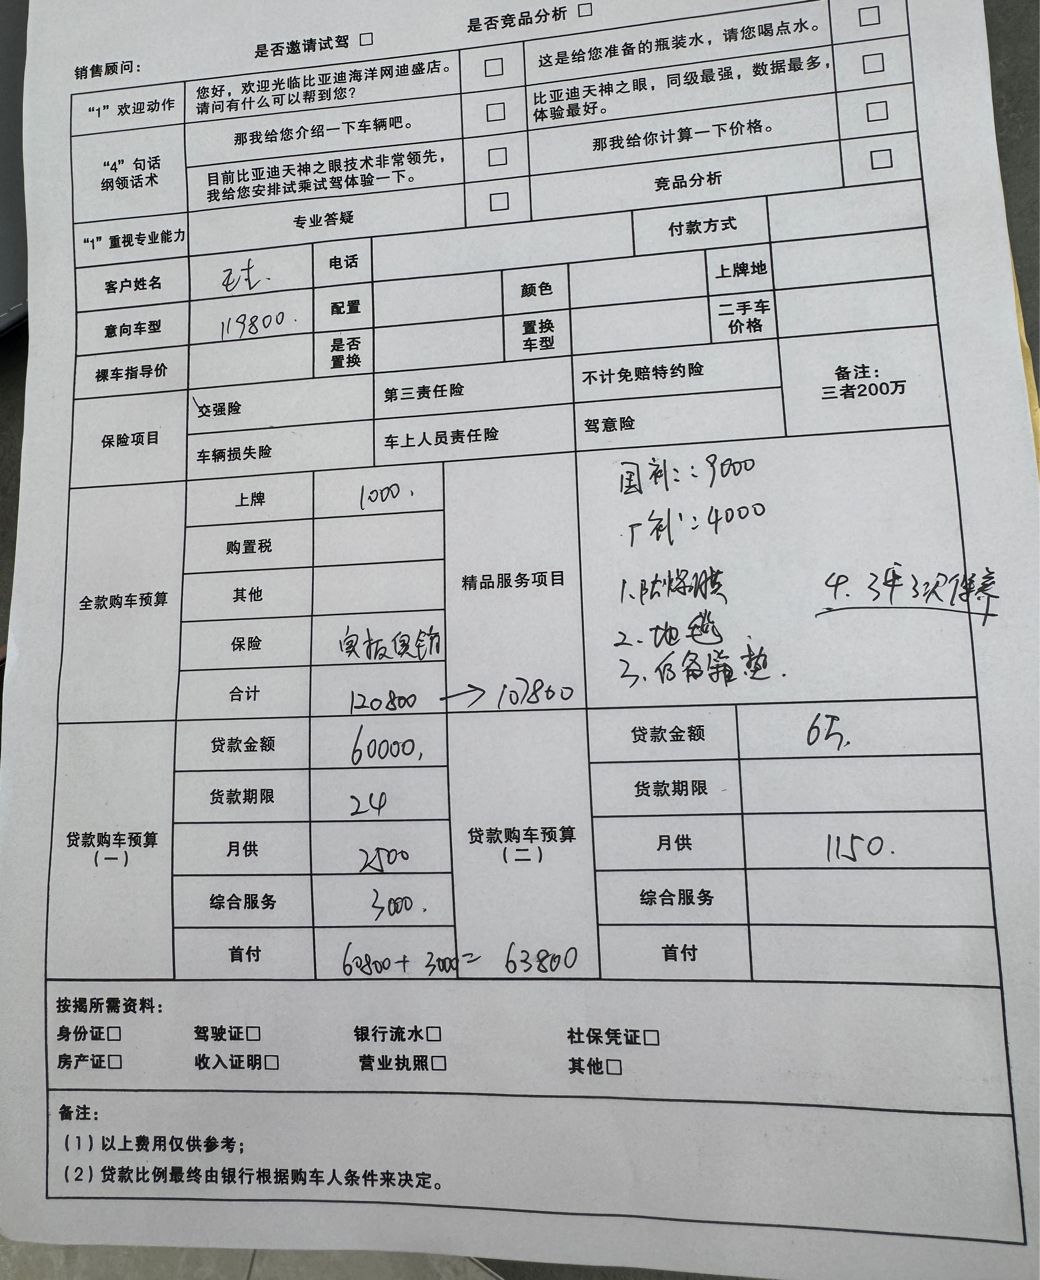 是否邀请试驾 □ 是否竞品分析 □
销售顾问：
“1”欢迎动作
您好，欢迎光临比亚迪海洋网迪盛店。
请问有什么可以帮到您？
□
这是给您准备的瓶装水，请您喝点水。
□
“4”句话
纲领话术
那我给您介绍一下车辆吧。
□
比亚迪天神之眼，同级最强，数据最多，
体验最好。
□
目前比亚迪天神之眼技术非常领先，
我给您安排试乘试驾体验一下。
□
那我给你计算一下价格。
□
“1”重视专业能力
专业答疑
□
竞品分析
□
客户姓名
电话
付款方式
意向车型 119800.
配置
颜色
上牌地
裸车指导价
是否
置换
置换
车型
二手车
价格
保险项目
交强险
第三责任险
不计免赔特约险
车辆损失险
车上人员责任险
驾意险
备注：
三者200万
全款购车预算
上牌 1000.
购置税
其他
保险 实报实销
合计 120800 → 107800
精品服务项目
国补：9000
厂补：4000
1.防爆膜
2.地毯
3.后备箱垫.
4.3年3次保养
贷款购车预算
（一）
贷款金额 60000.
贷款期限 24
月供 2500
综合服务 3000.
首付 60800+3000= 63800
贷款购车预算
（二）
贷款金额 6万.
贷款期限
月供 1150.
综合服务
首付
按揭所需资料：
身份证□ 驾驶证□ 银行流水□ 社保凭证□
房产证□ 收入证明□ 营业执照□ 其他□
备注：
（1）以上费用仅供参考；
（2）贷款比例最终由银行根据购车人条件来决定。